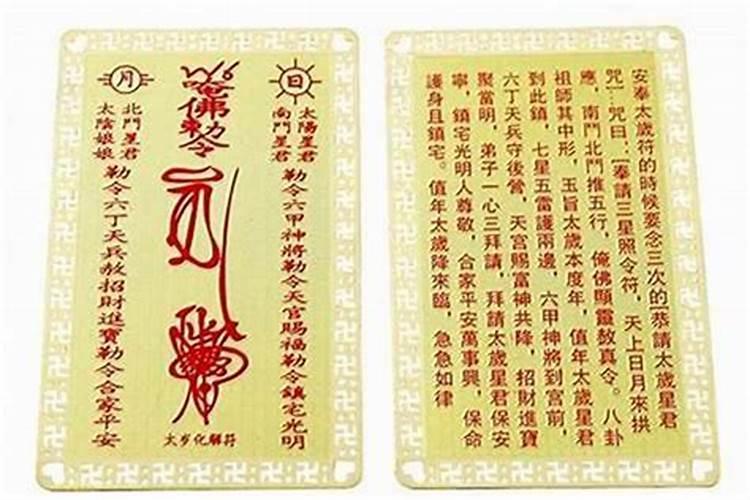 日
太陽星君
南鬥星君
勒令六甲神將勒令天官賜福勒令鎮宅光明
唵佛勅令
太岁化解符
月
北鬥星君
太陰娘娘
勒令六丁天兵敖招財進寶勒令合家平安
安奉太歲符的時候要念三次的[恭請太歲星君
咒]—咒曰:[奉請三星照令符,天上日月來拱
應,南鬥北鬥推五行,俺佛顯靈敖真令。八卦
祖師其中形,玉旨太歲本度年,值年太歲星君
到此鎮,七星五雷護兩邊,六甲神將到宮前,
六丁天兵守後營,天宮賜富神共降,招財進寶
聚當明,弟子一心三拜請,拜請太歲星君保安
寧,鎮宅光明人尊敬,合家平安萬事興,保命
護身且鎮宅。值年太歲降來臨,急急如律